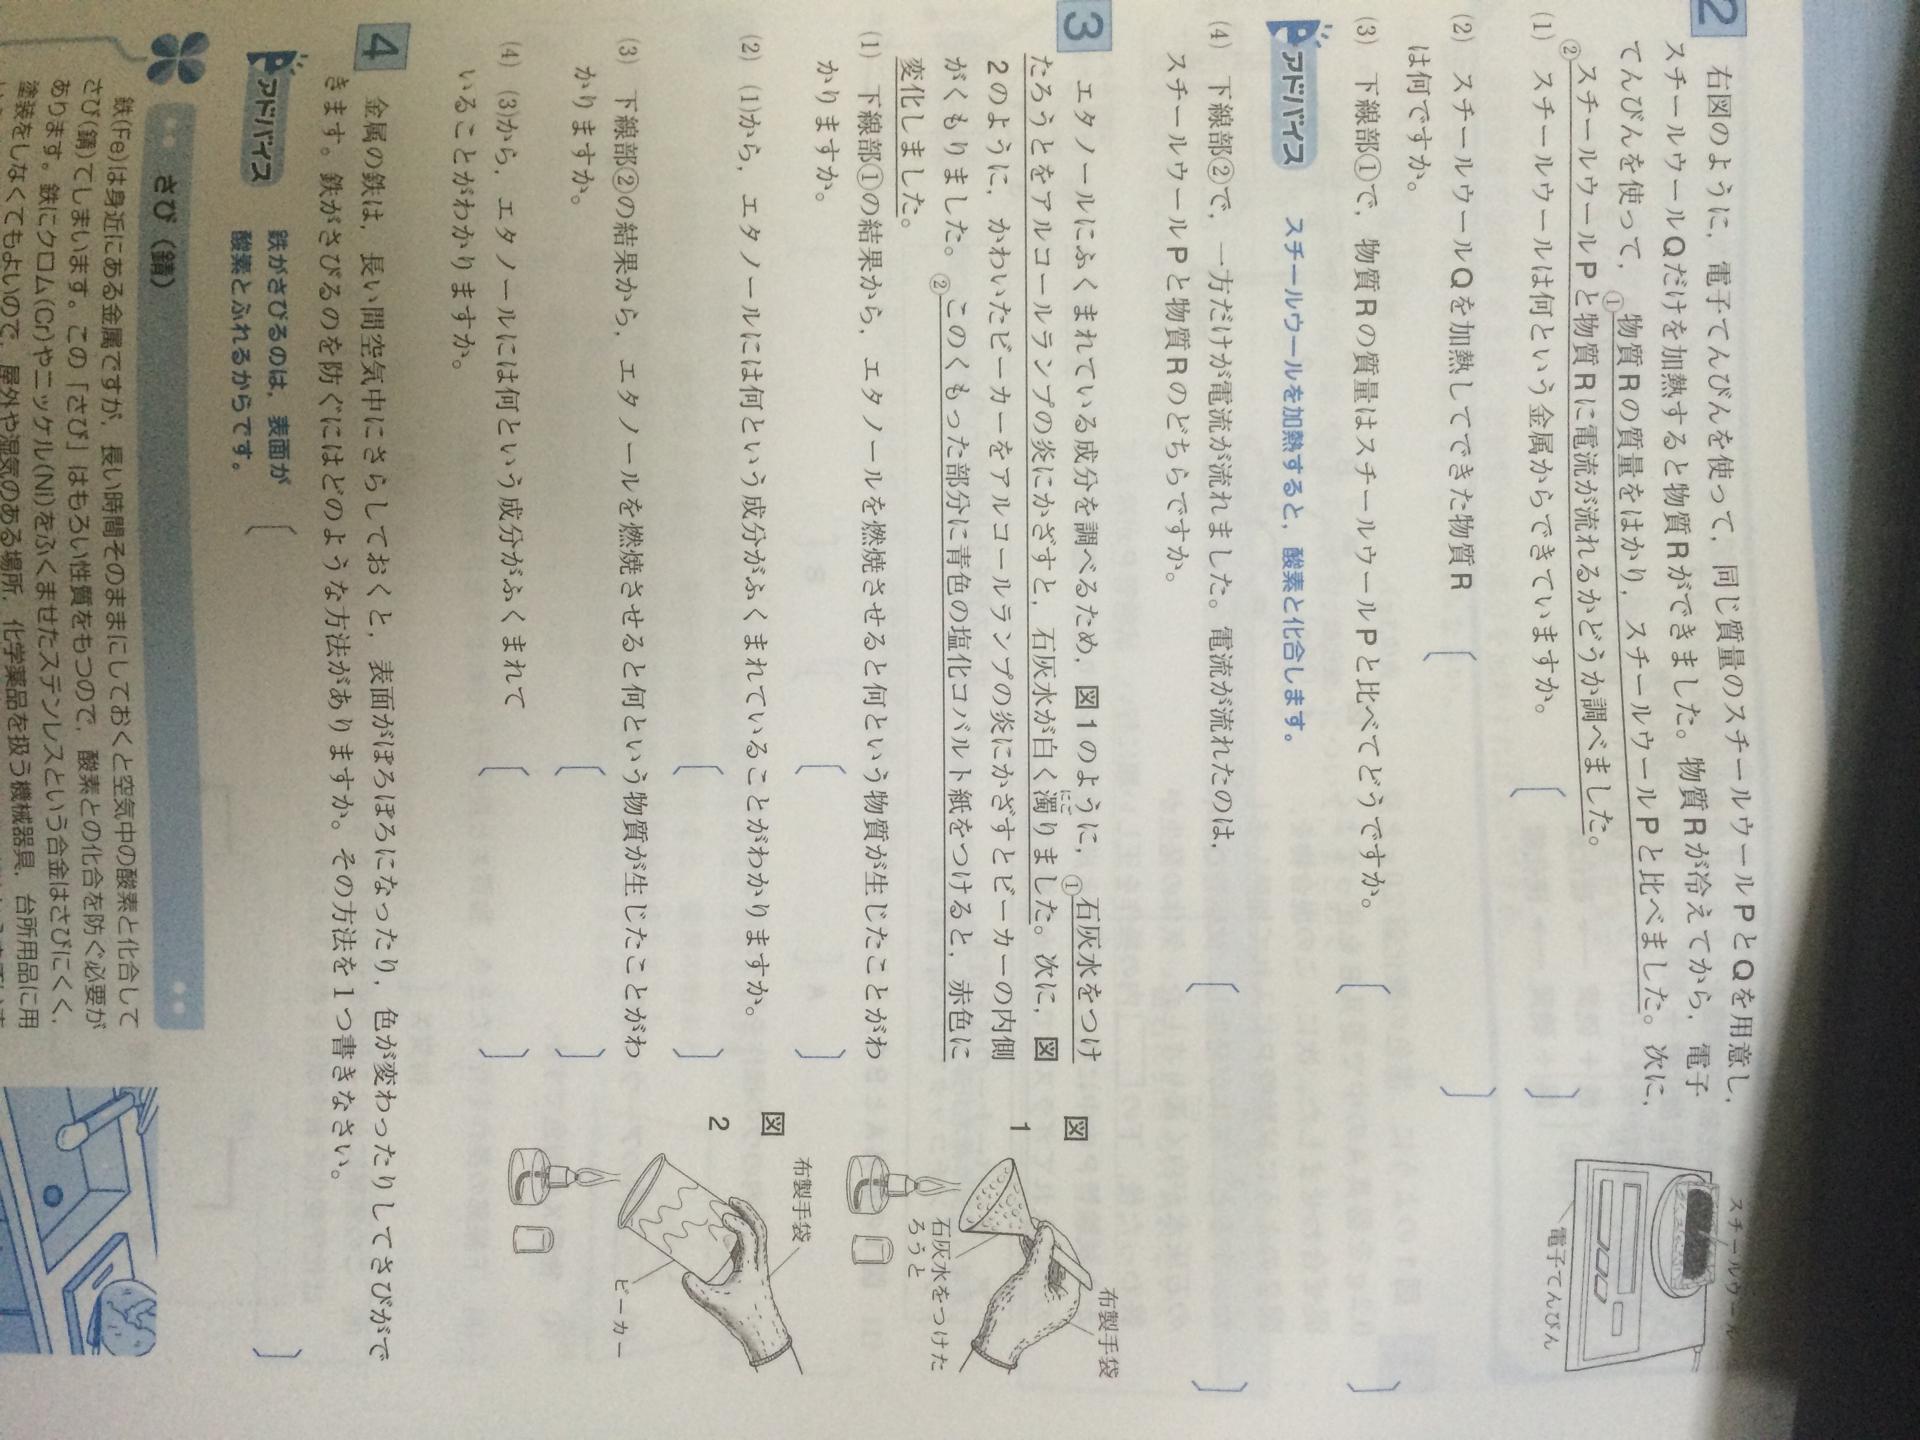 2 右図のように，電子てんびんを使って，同じ質量のスチールウールPとQを用意し，
スチールウールQだけを加熱すると物質Rができました。物質Rが冷えてから，電子
てんびんを使って，①物質Rの質量をはかり，スチールウールPと比べました。次に，
②スチールウールPと物質Rに電流が流れるかどうか調べました。
(1) スチールウールは何という金属からできていますか。
(2) スチールウールQを加熱してできた物質R
は何ですか。
(3) 下線部①で，物質Rの質量はスチールウールPと比べてどうですか。
アドバイス スチールウールを加熱すると，酸素と化合します。
(4) 下線部②で，一方だけが電流が流れました。電流が流れたのは，
スチールウールPと物質Rのどちらですか。
スチールウール
電子てんびん
3 エタノールにふくまれている成分を調べるため，図1のように，①石灰水をつけ
たろうとをアルコールランプの炎にかざすと，石灰水が白く濁りました。次に，図
にご
2のように，かわいたビーカーをアルコールランプの炎にかざすとビーカーの内側
がくもりました。②このくもった部分に青色の塩化コバルト紙をつけると，赤色に
変化しました。
(1) 下線部①の結果から，エタノールを燃焼させると何という物質が生じたことがわ
かりますか。
(2) (1)から，エタノールには何という成分がふくまれていることがわかりますか。
(3) 下線部②の結果から，エタノールを燃焼させると何という物質が生じたことがわ
かりますか。
(4) (3)から，エタノールには何という成分がふくまれて
いることがわかりますか。
図1
布製手袋
石灰水をつけた
ろうと
図2
布製手袋
ビーカー
4 金属の鉄は，長い間空気中にさらしておくと，表面がぼろぼろになったり，色が変わったりしてさびがで
きます。鉄がさびるのを防ぐにはどのような方法がありますか。その方法を1つ書きなさい。
アドバイス 鉄がさびるのは，表面が
酸素とふれるからです。
さび（錆）
鉄(Fe)は身近にある金属ですが，長い時間そのままにしておくと空気中の酸素と化合して
さび(錆)てしまいます。この「さび」はもろい性質をもつので，酸素との化合を防ぐ必要が
あります。鉄にクロム(Cr)やニッケル(Ni)をふくませたステンレスという合金はさびにくく，
塗装をしなくてもよいので，屋外や湿気のある場所，化学薬品を扱う機械器具，台所用品に用